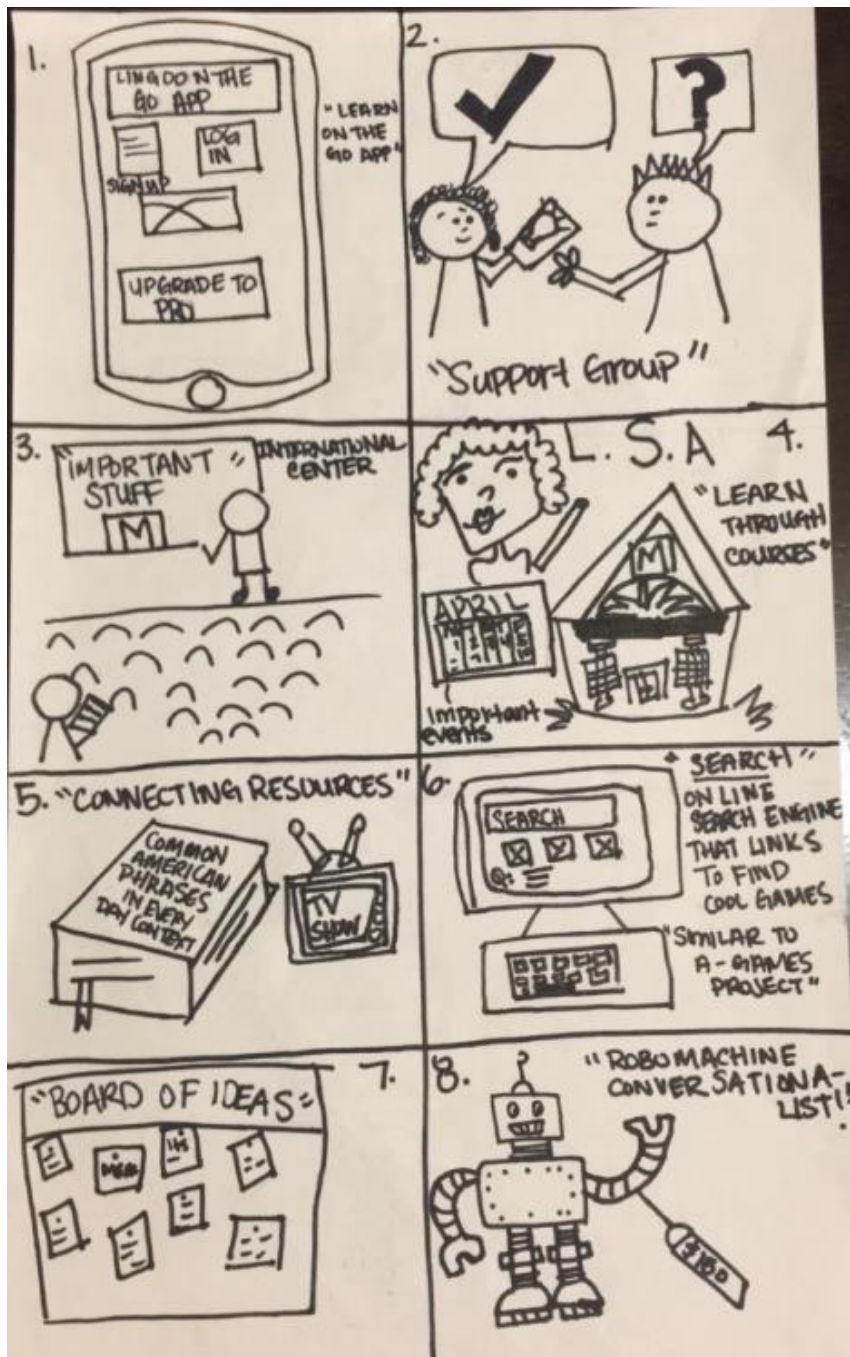 1.
LINGO ON THE
GO APP
SIGN UP
LOG
IN
UPGRADE TO
PRO
"LEARN
ON THE
GO APP"
2.
?
"Support Group"
3.
"IMPORTANT"
STUFF
M
INTERNATIONAL
CENTER
L.S.A
4.
"LEARN
THROUGH
COURSES"
APRIL
M
Important
events
5. "CONNECTING RESOURCES"
COMMON
AMERICAN
PHRASES
IN EVERY
DAY CONTEXT
TV
SHOW
6.
SEARCH
Q:
"SEARCH"
ON LINE
SEARCH ENGINE
THAT LINKS
TO FIND
COOL GAMES
"SIMILAR TO
A-GAMES
PROJECT"
7.
"BOARD OF IDEAS"
8.
"ROBOMACHINE
CONVERSATIONA-
LIST!"